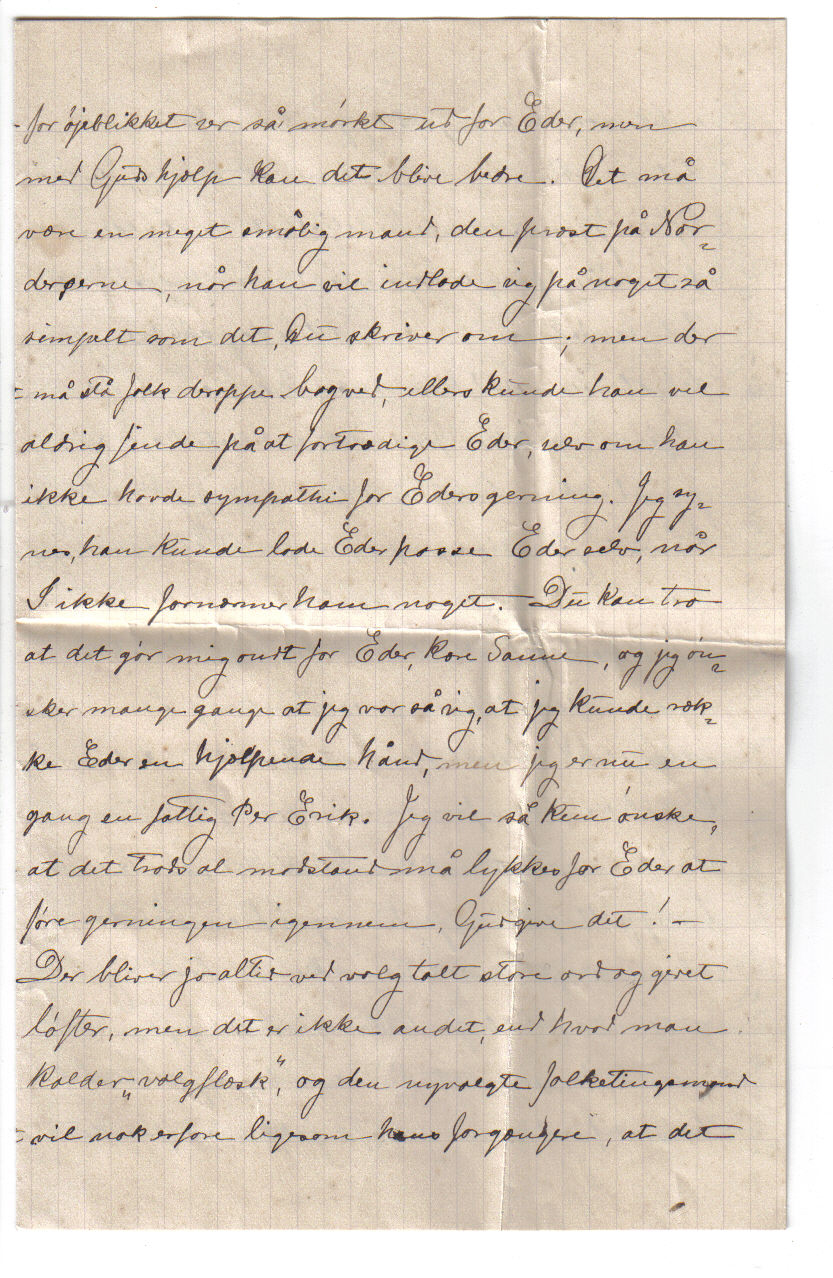 for øjeblikket ser så mørkt ud for Eder, men
med Guds hjælp kan det blive bedre. Det må
være en meget smålig mand, den præst på Nor-
derøerne, når han vil indlade sig på noget så
simpelt som det, Du skriver om; men der
må stå folk deroppe bagved, ellers kunde han vel
aldrig finde på at fortrædige Eder, selv om han
ikke havde sympathi for Eders gerning. Jeg sy-
nes, han kunde lade Eder passe Eder selv, når
I ikke fornærmer ham noget. Du kan tro
at det gør mig ondt for Eder, kære Sanne, og jeg øn-
sker mange gange at jeg var så rig, at jeg kunde ræk-
ke Eder en hjælpende hånd, men jeg er nu en
gang en fattig Per Erik. Jeg vil så kun ønske,
at det trods al modstand må lykkes for Eder at
føre gerningen igennem, Gud give det! —
Der bliver jo altid ved valg talt store ord og givet
løfter, men det er ikke andet, end hvad man
kalder „valgflæsk", og den nyvalgte folketingsmand
vil nok erfare ligesom hans forgængere, at det